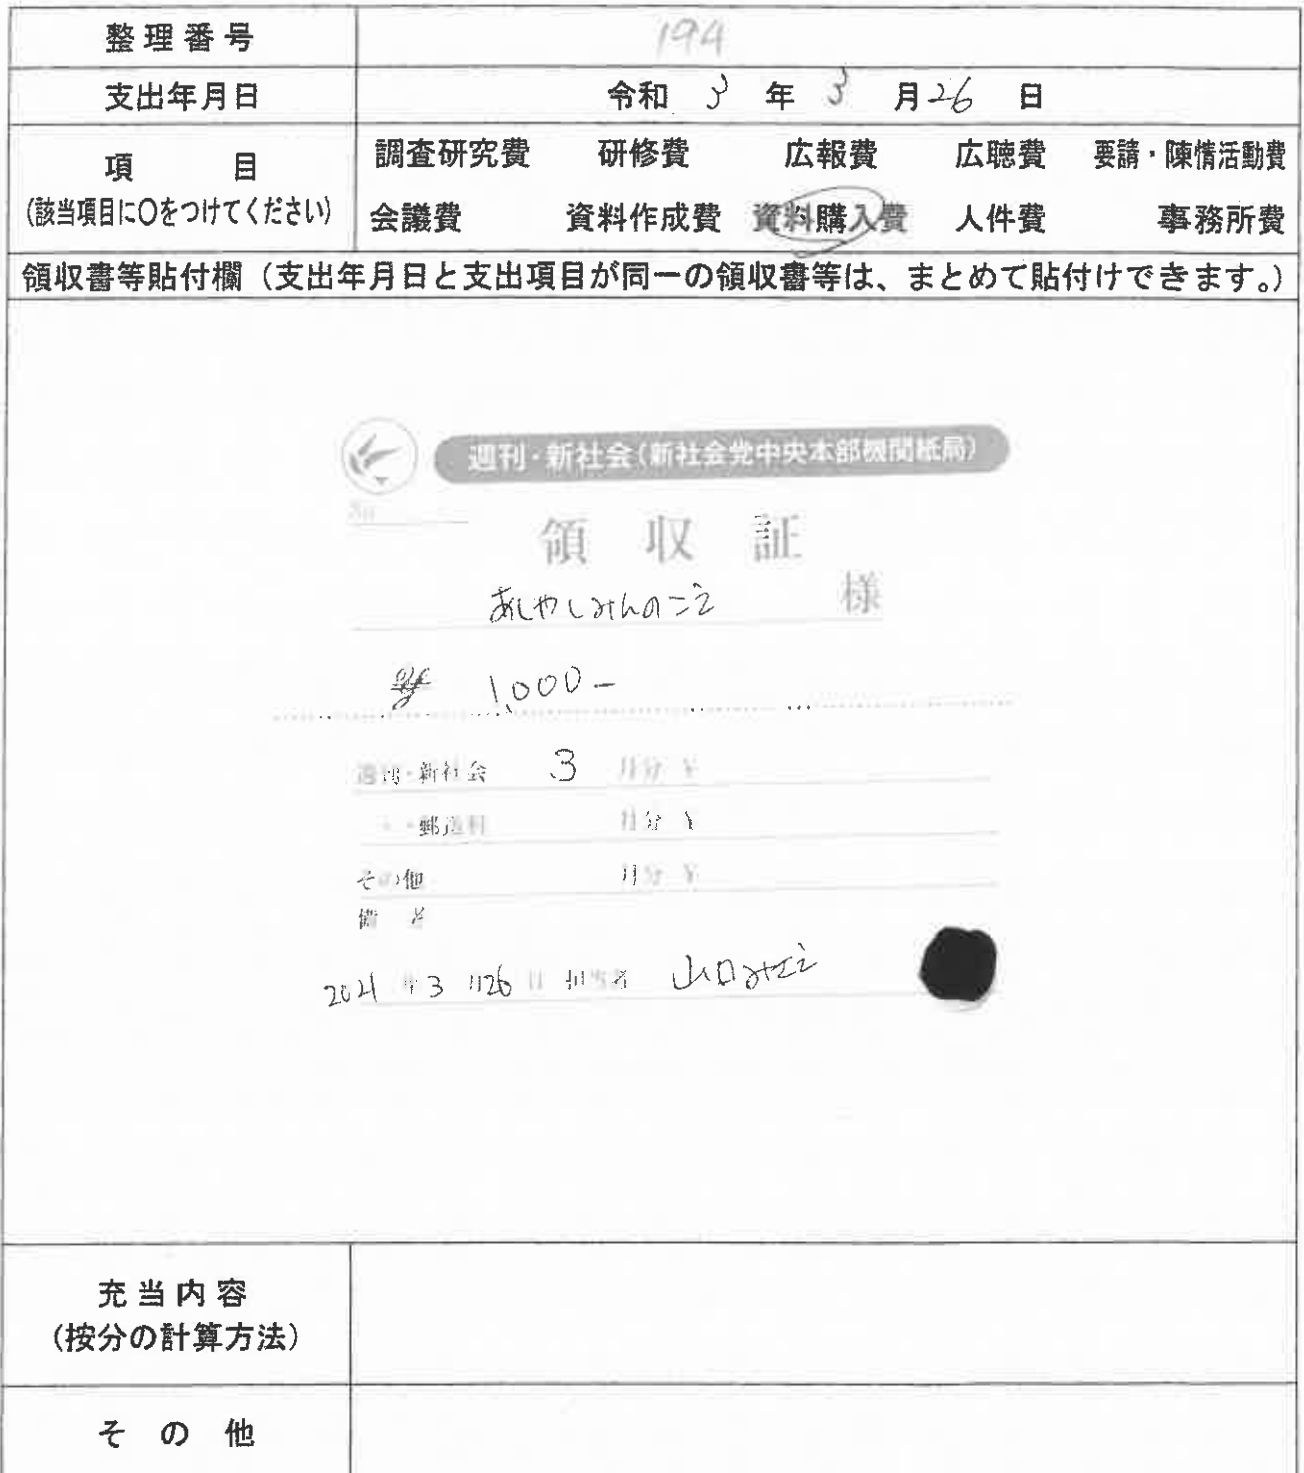 整理番号 194
支出年月日 令和 3 年 3 月 26 日
項 目
(該当項目に○をつけてください)
調査研究費 研修費 広報費 広聴費 要請・陳情活動費
会議費 資料作成費 資料購入費 人件費 事務所費
領収書等貼付欄（支出年月日と支出項目が同一の領収書等は、まとめて貼付けできます。）
週刊・新社会（新社会党中央本部機関紙局）
No
領収証
あしやしみんのこえ 様
1,000-
週刊・新社会 3 月分 ¥
郵送料 月分 ¥
その他 月分 ¥
備考
2021 年 3 月 26 日 担当者 山口みさえ
充当内容
(按分の計算方法)
その他